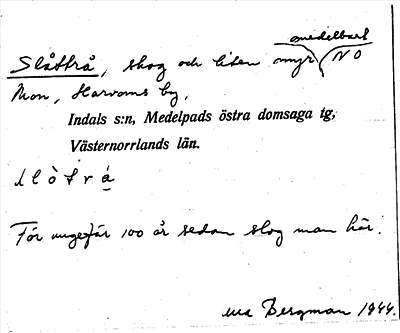 medelbart
Slåttrå, skog och liten myr NO
Mon, Harvoms by,
Indals s:n, Medelpads östra domsaga tg,
Västernorrlands län.
slòtrá
För ungefär 100 år sedan slog man här.
Bergman 1944.